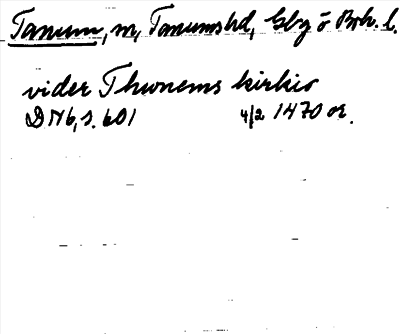 Tanum, m, Tanumshd, Gbg o Boh. l.
vider Thunems kirkio
DN 6, s. 601 4/2 1470 or.